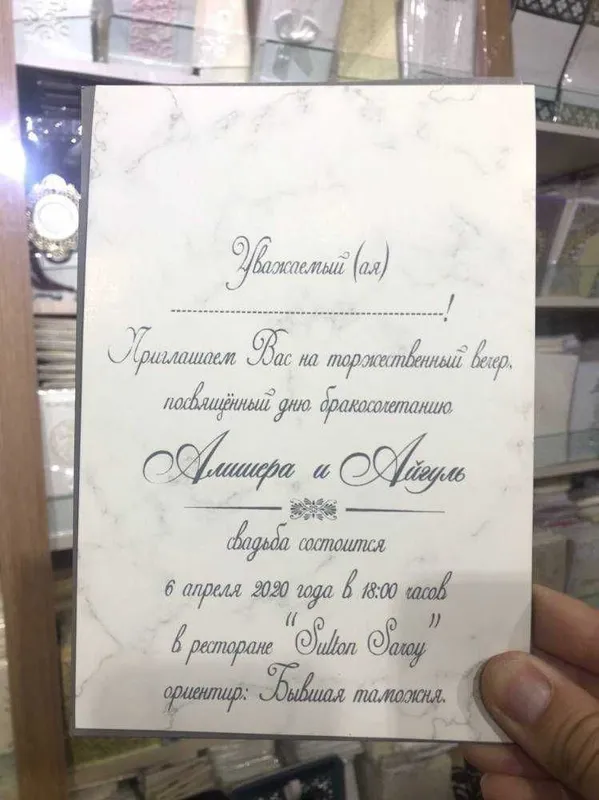 Уважаемый (ая)
------------------------------------------!
Приглашаем Вас на торжественный вечер,
посвящённый дню бракосочетанию
Алишера и Айгуль
свадьба состоится
6 апреля 2020 года в 18:00 часов
в ресторане "Sulton Saroy"
ориентир: Бывшая таможня.